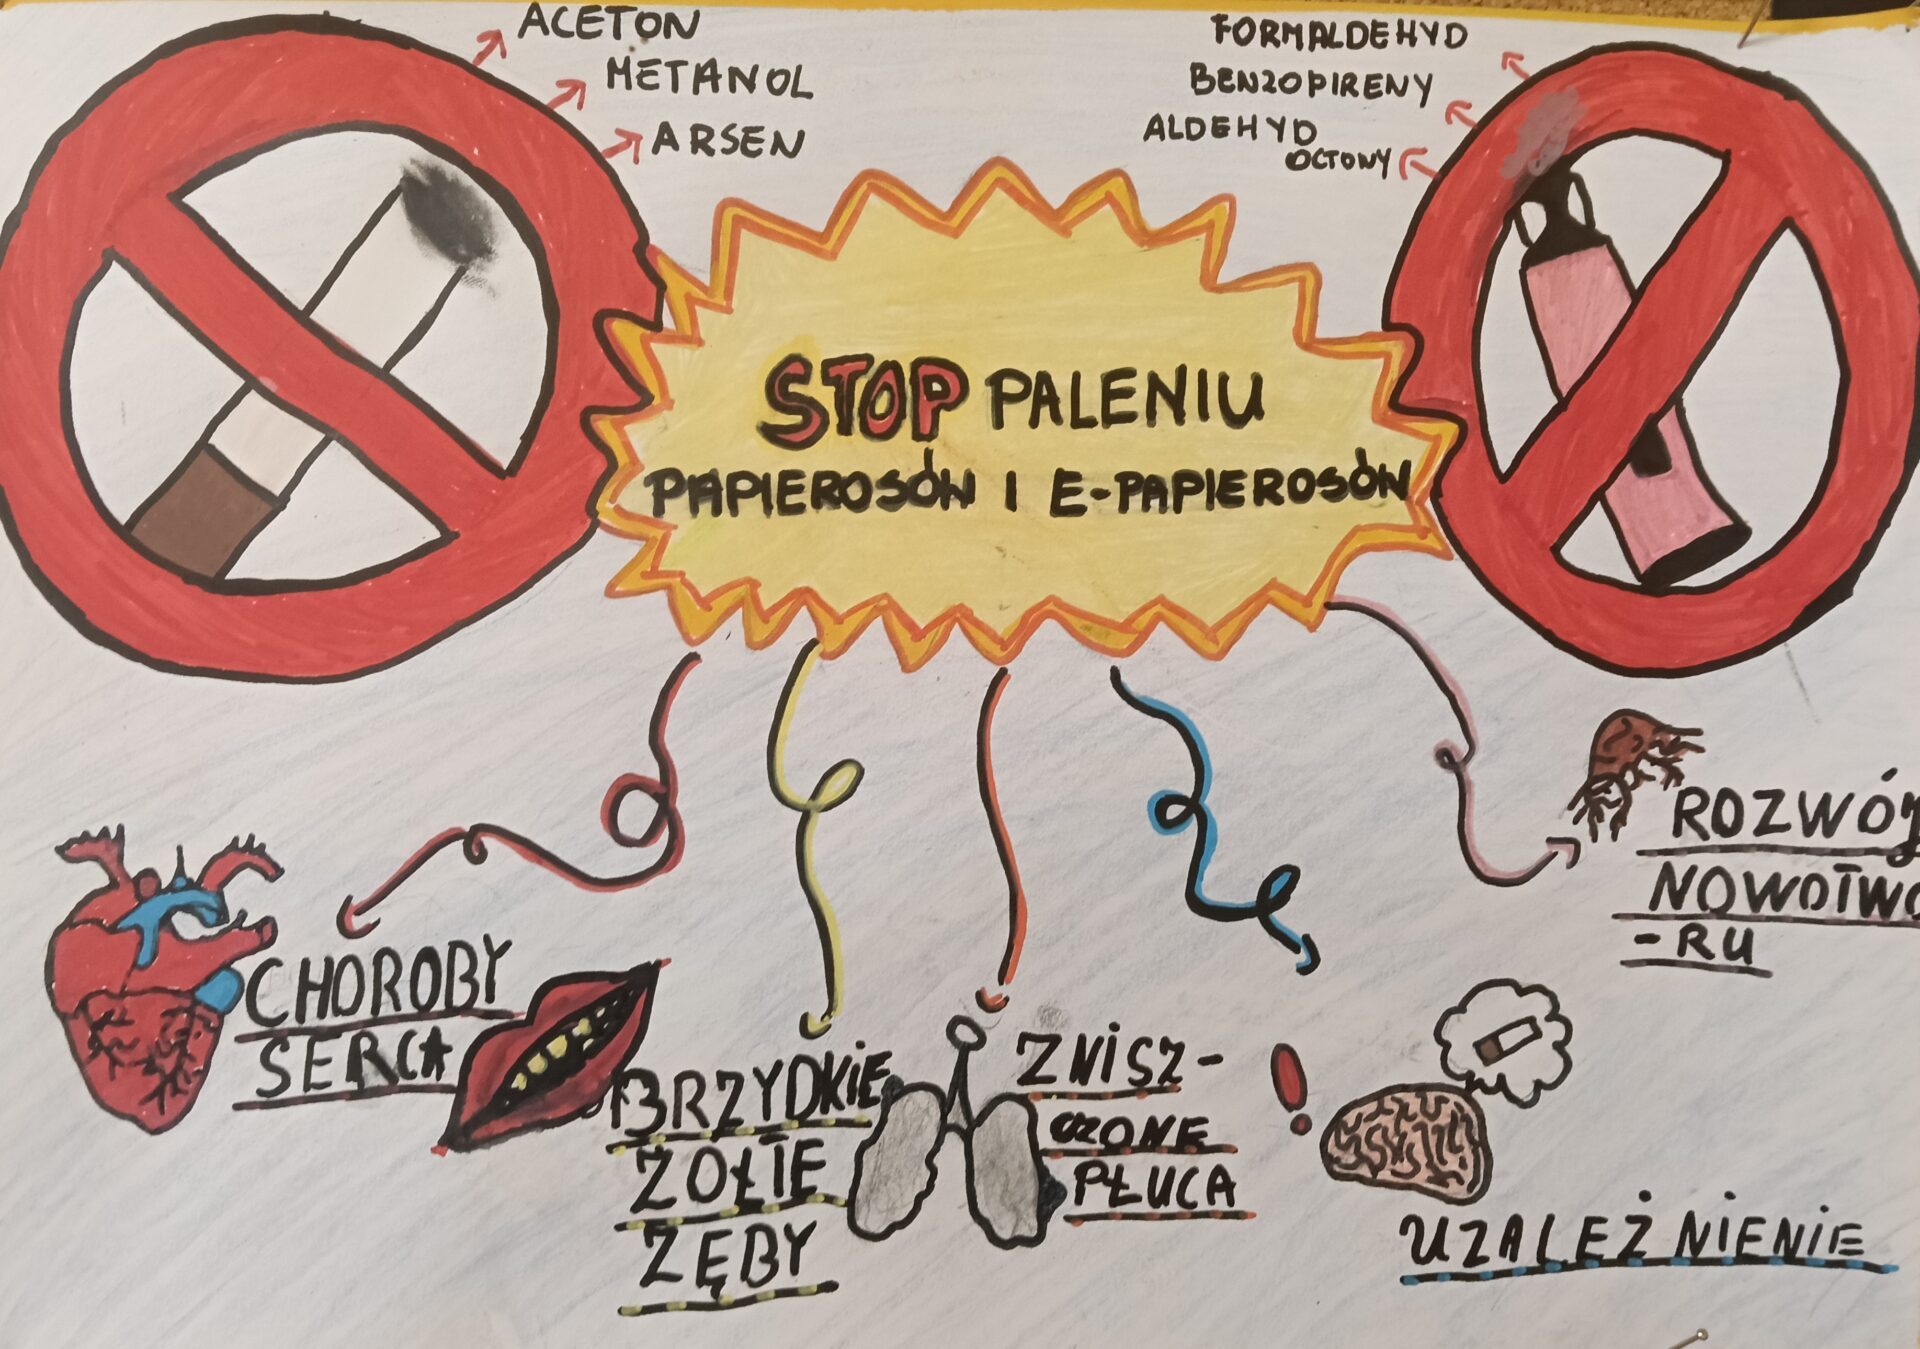 ACETON
METANOL
ARSEN
FORMALDEHYD
BENZOPIRENY
ALDEHYD
OCTOWY
STOP PALENIU
PAPIEROSÓW I E-PAPIEROSÓW
CHOROBY
SERCA
BRZYDKIE
ŻOŁTE
ZĘBY
ZNISZ-
CZONE
PŁUCA
UZALEŻNIENIE
ROZWÓJ
NOWOTWO
-RU